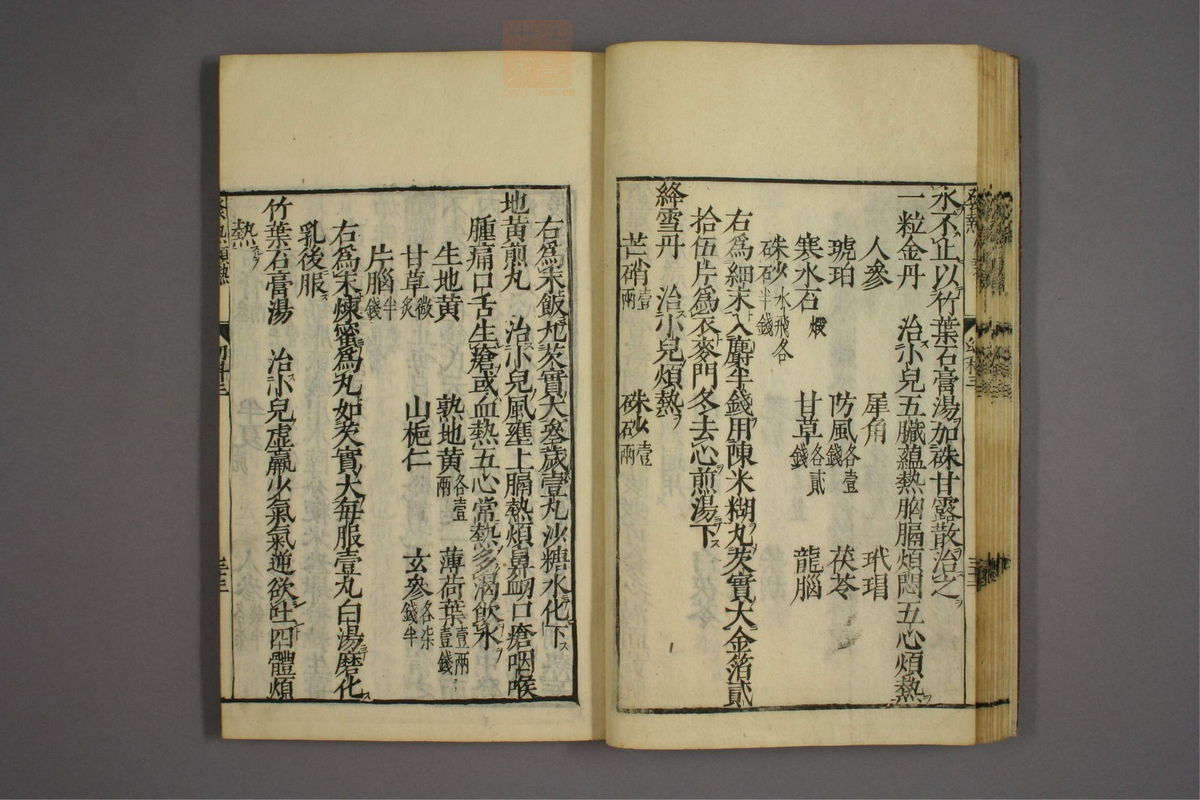 水不止以竹葉石膏湯加硃甘露散治之
一粒金丹　治小兒五臟蘊熱胸膈煩悶五心煩熱
人參　犀角　玳瑁
琥珀　防風各壹錢　茯苓
寒水石煅　甘草各貳錢　龍腦
硃砂水飛各半錢
右爲細末入麝半錢用陳米糊丸芡實大金箔貳
拾伍片爲衣麥門冬去心煎湯下
絳雪丹　治小兒煩熱
芒硝壹兩　硃砂壹兩
右爲末飯丸芡實大叄歲壹丸沙糖水化下
地黄煎丸　治小兒風壅上膈熱煩鼻衄口瘡咽喉
腫痛口舌生瘡或血熱五心常熱多渴飲水
生地黄　熟地黄各壹兩　薄荷葉壹兩壹錢
甘草微炙　山梔仁　玄參各柒錢半
片腦半錢
右爲末煉蜜爲丸如芡實大每服壹丸白湯磨化
乳後服
竹葉石膏湯　治小兒虛羸少氣氣逆欲吐四體煩
熱